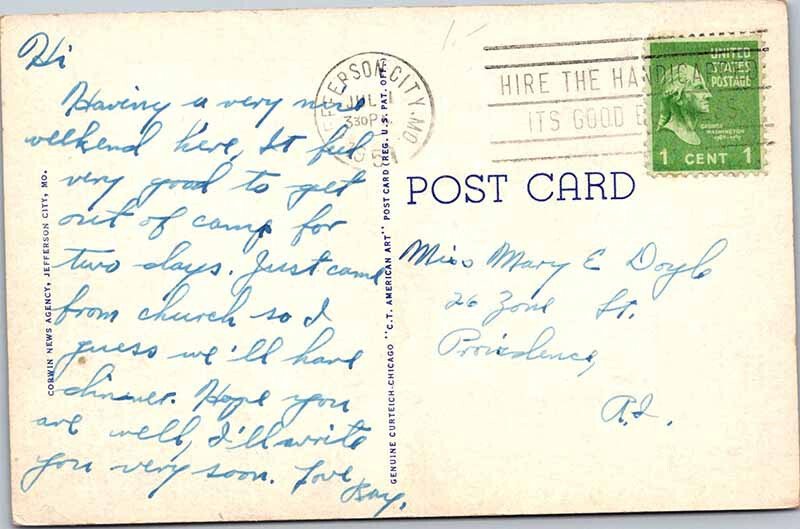 Hi
Having a very nice
weekend here, It feel
very good to get
out of camp for
two days. Just came
from church so I
guess we'll have
dinner. Hope you
are well, I'll write
you very soon. Love
Ray.
CORWIN NEWS AGENCY, JEFFERSON CITY, MO.
GENUINE CURTEICH-CHICAGO "C.T. AMERICAN ART" POST CARD (REG. U.S. PAT. OFF.)
JEFFERSON CITY, MO.
JUL 1
330 PM
1951
HIRE THE HANDICA
ITS GOOD B
UNITED
STATES
POSTAGE
GEORGE
WASHINGTON
1 CENT 1
POST CARD
Miss Mary E Doyle
26 Zone St.
Providence,
R.I.